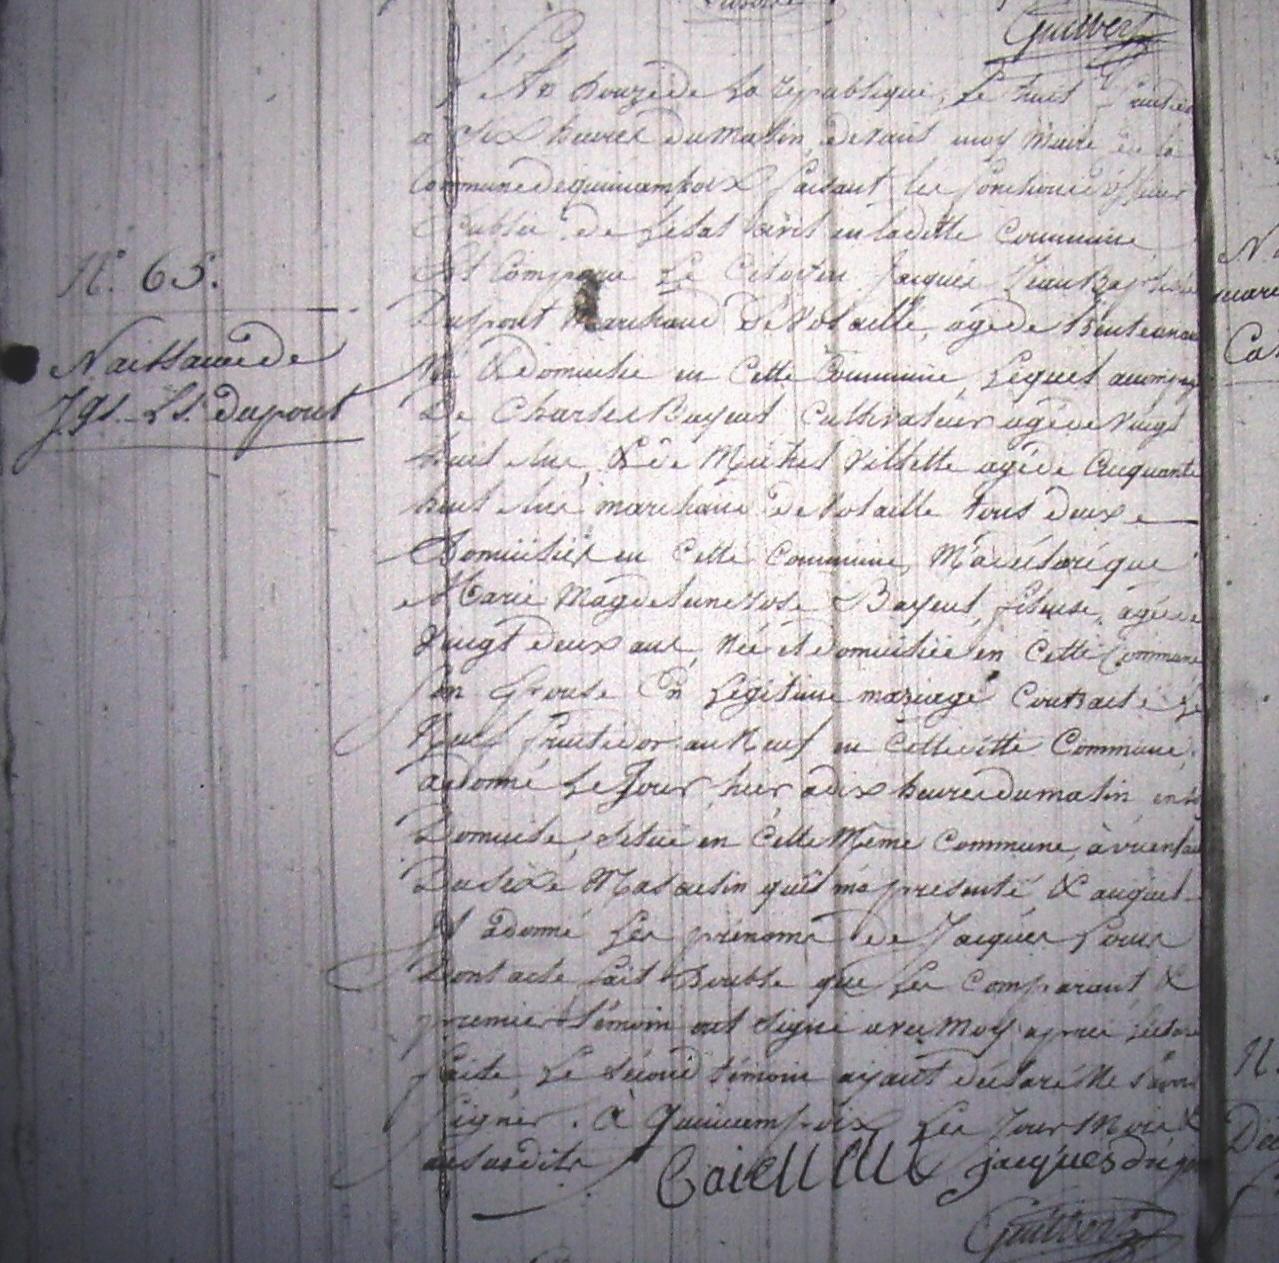 Guilbert
L'An Douze de La république, Le huit fructidor
à Six heures du Matin, devant moy Maire de la
Commune de quincampoix faisant les fonctions d'officier
Public de L'etat civil en ladette Commune
Est Comparu Le Citoyen Jacques Jean Baptiste
Dupont Marchand De Volaille, agé de trente un ans
Né & domicilié en Cette Commune, Lequel accompagné
De Charles Bayeul Cultivateur agé de Vingt
huit ans, & de Michel Villette agé de Cinquante
huit ans marchand de Volaille tous deux
Domiciliés en Cette Commune, M'a déclaré que
Marie Magdeleine Rose Bayeul, fileuse, agée de
Vingt deux ans, Née et domiciliée en Cette Commune
son Epouse En Légitime mariage Contracté Le
Neuf fructidor an Neuf en Cette ditte Commune,
a donné Le Jour, hier a dix heures du matin en son
Domicile, situé en Cette Même Commune, à un enfant
Du Sexe Masculin qu'il m'a présenté & auquel
Il a donné Les prénoms de Jacques Louis
Dont acte fait Double que Les Comparant &
premier témoin ont signé avec Moy après Lecture
faite, Le second témoin ayant déclaré Ne savoir
signer. A Quincampoix Les Jour Mois &
an susdits
jacques dupont
Guilbert
N.º 65.
Naissance de
Jqs. Ls. dupont